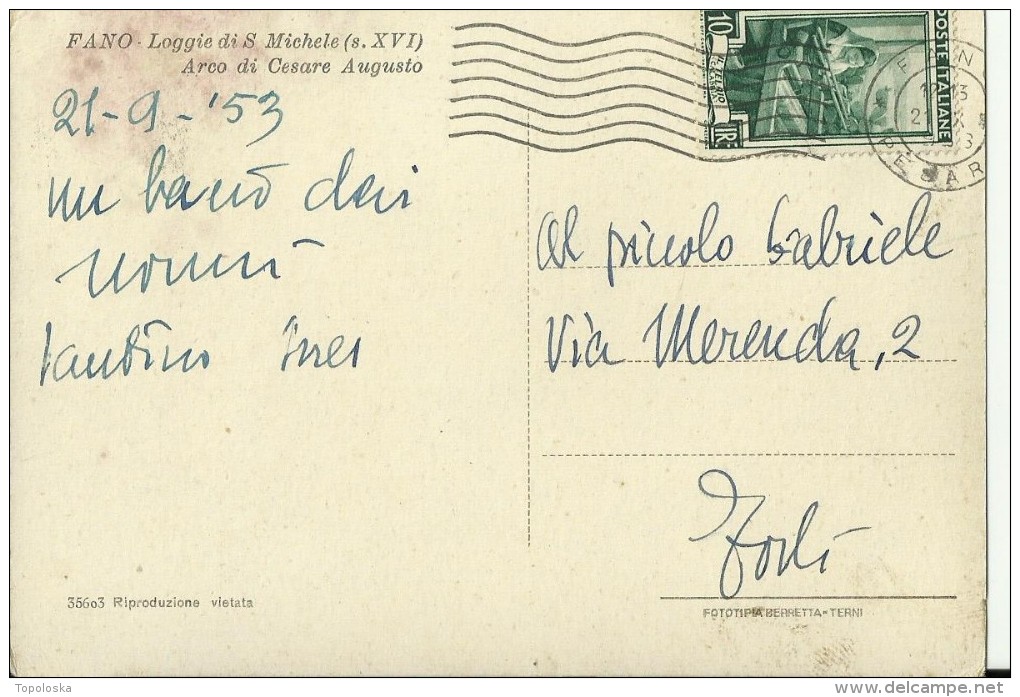 FANO - Loggie di S Michele (s. XVI)
Arco di Cesare Augusto
21-9-'53
un bacio dai
nonni
Ines
10
LIRE
POSTE ITALIANE
FANO
21 IX
PESARO
Al piccolo Gabriele
Via Merenda, 2
Forlì
35603 Riproduzione vietata
FOTOTIPIA BERRETTA - TERNI
Topoloska
www.delcampe.net